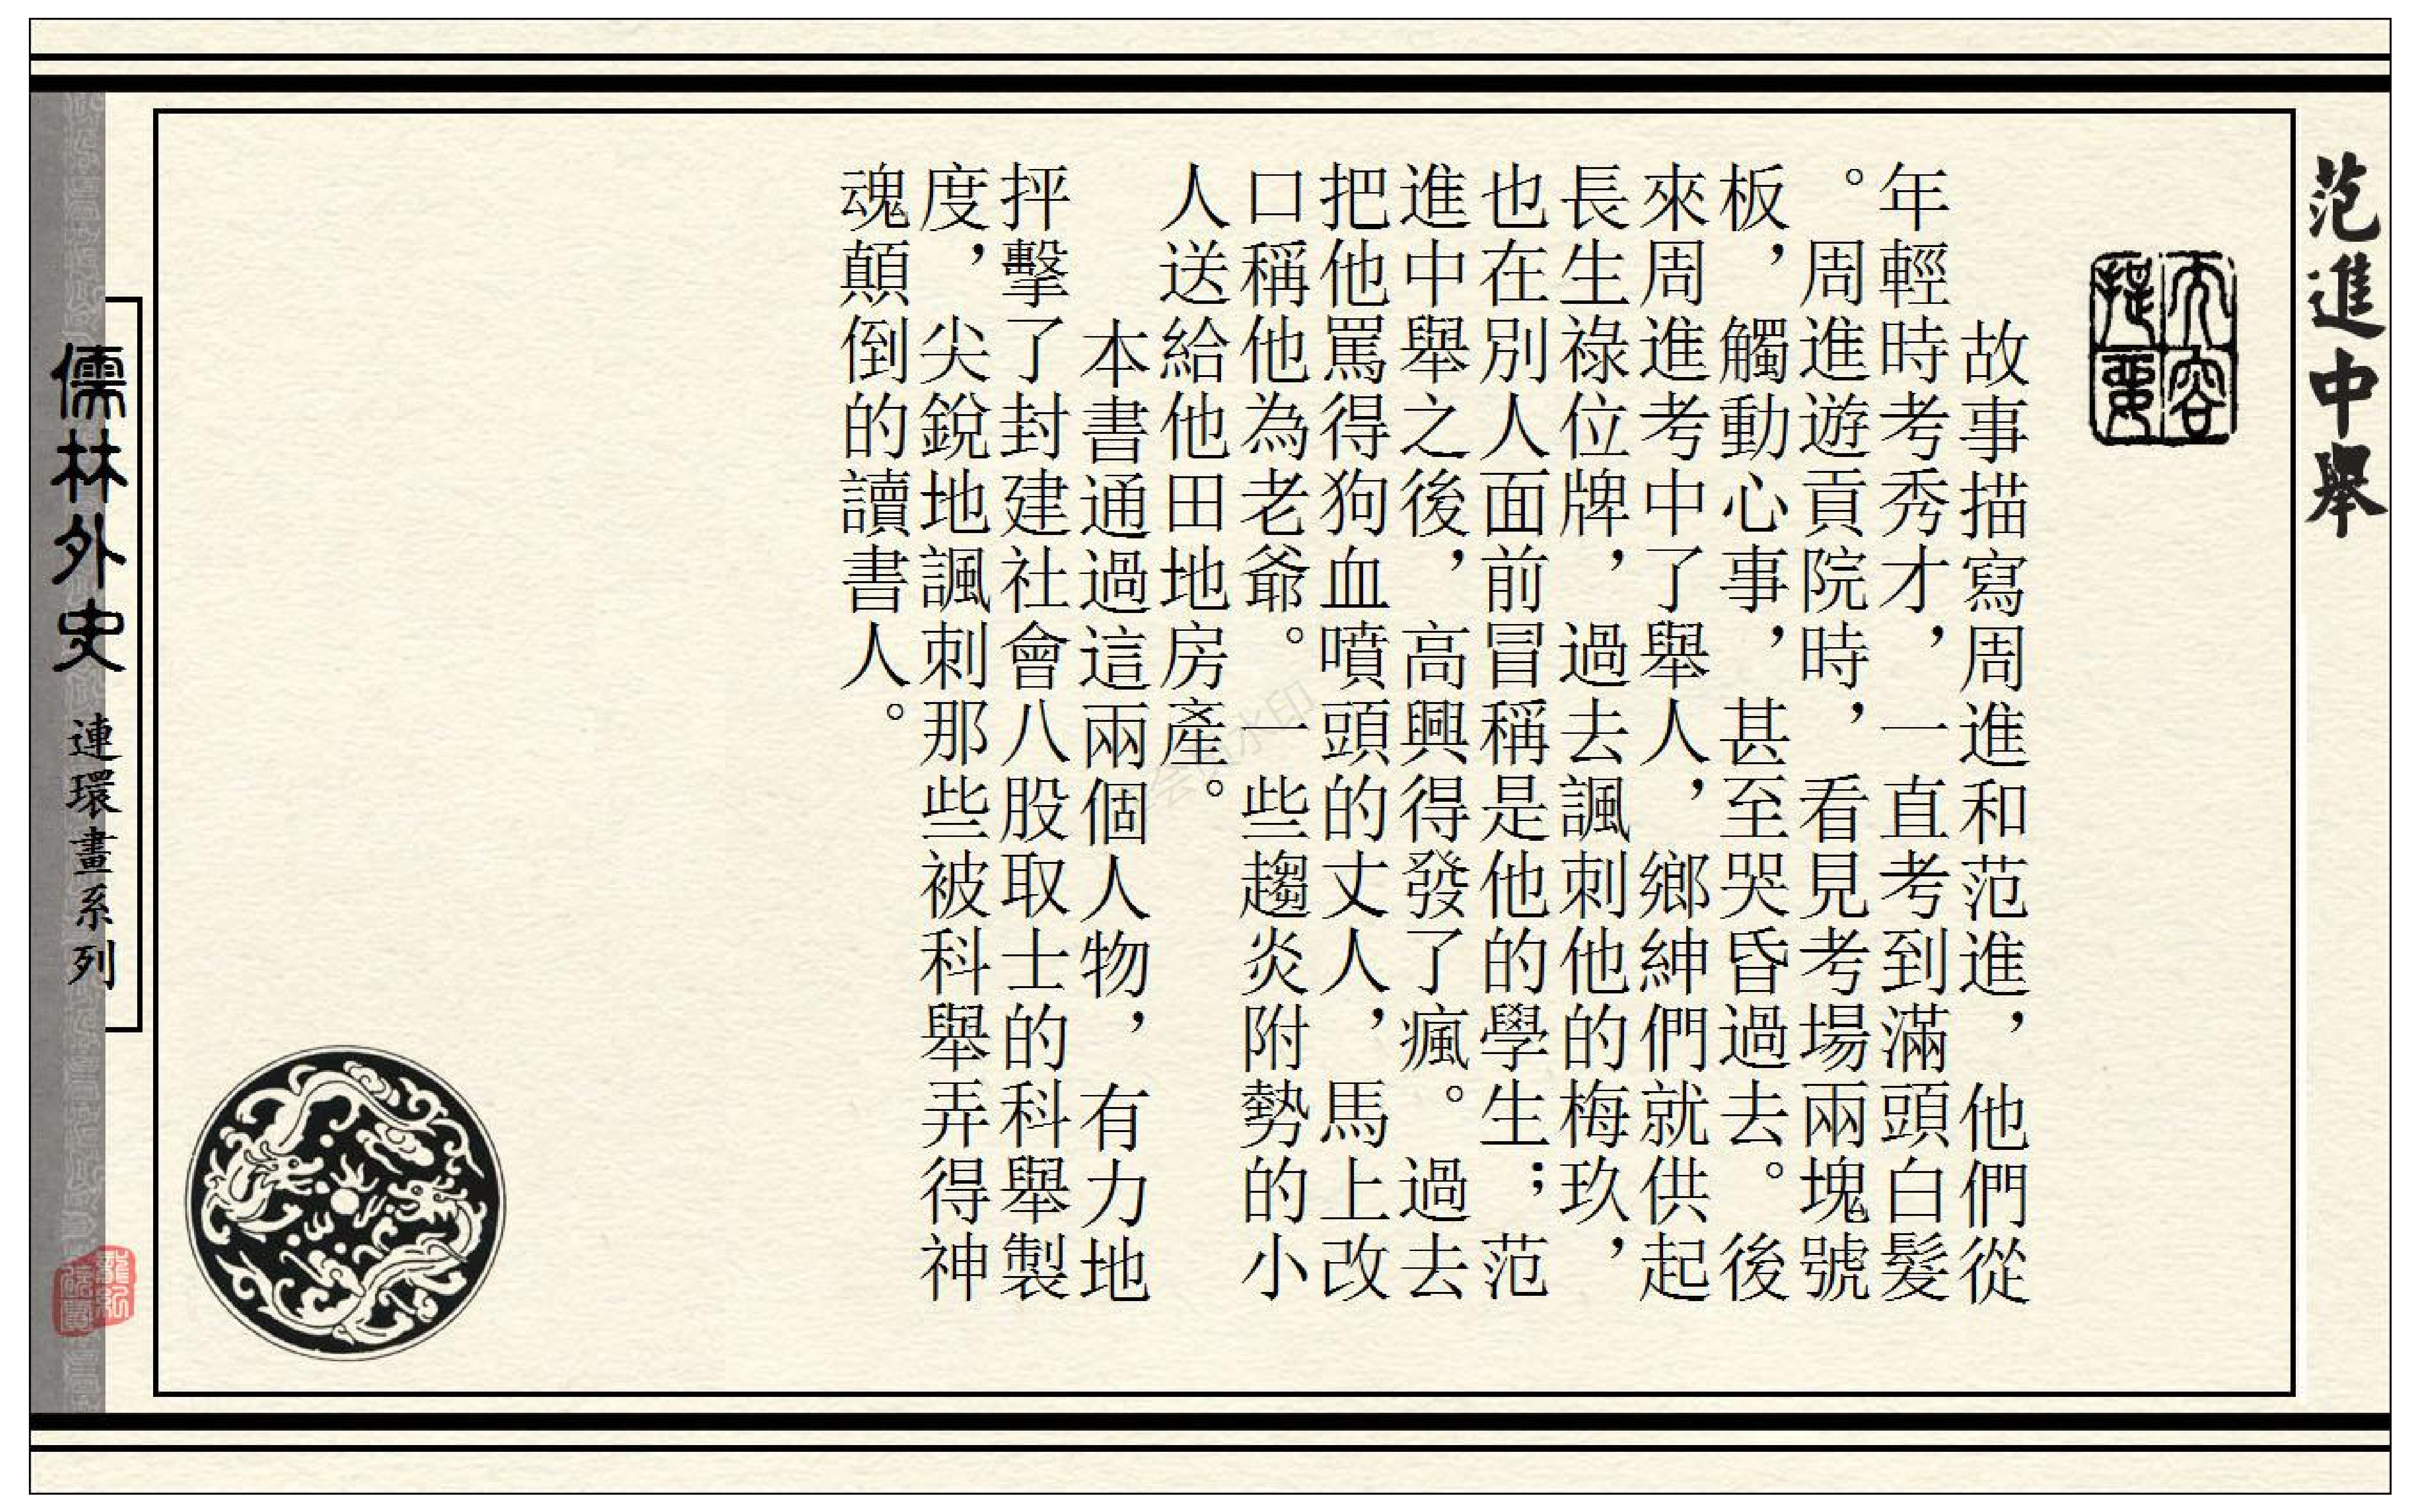 范進中舉
內容提要
故事描寫周進和范進，他們從
年輕時考秀才，一直考到滿頭白髮
。周進遊貢院時，看見考場兩塊號
板，觸動心事，甚至哭昏過去。後
來周進考中了舉人，鄉紳們就供起
長生祿位牌，過去諷刺他的梅玖，
也在別人面前冒稱是他的學生；范
進中舉之後，高興得發了瘋。過去
把他罵得狗血噴頭的丈人，馬上改
口稱他為老爺。一些趨炎附勢的小
人送給他田地房產。
本書通過這兩個人物，有力地
抨擊了封建社會八股取士的科舉製
度，尖銳地諷刺那些被科舉弄得神
魂顛倒的讀書人。
儒林外史
連環畫系列